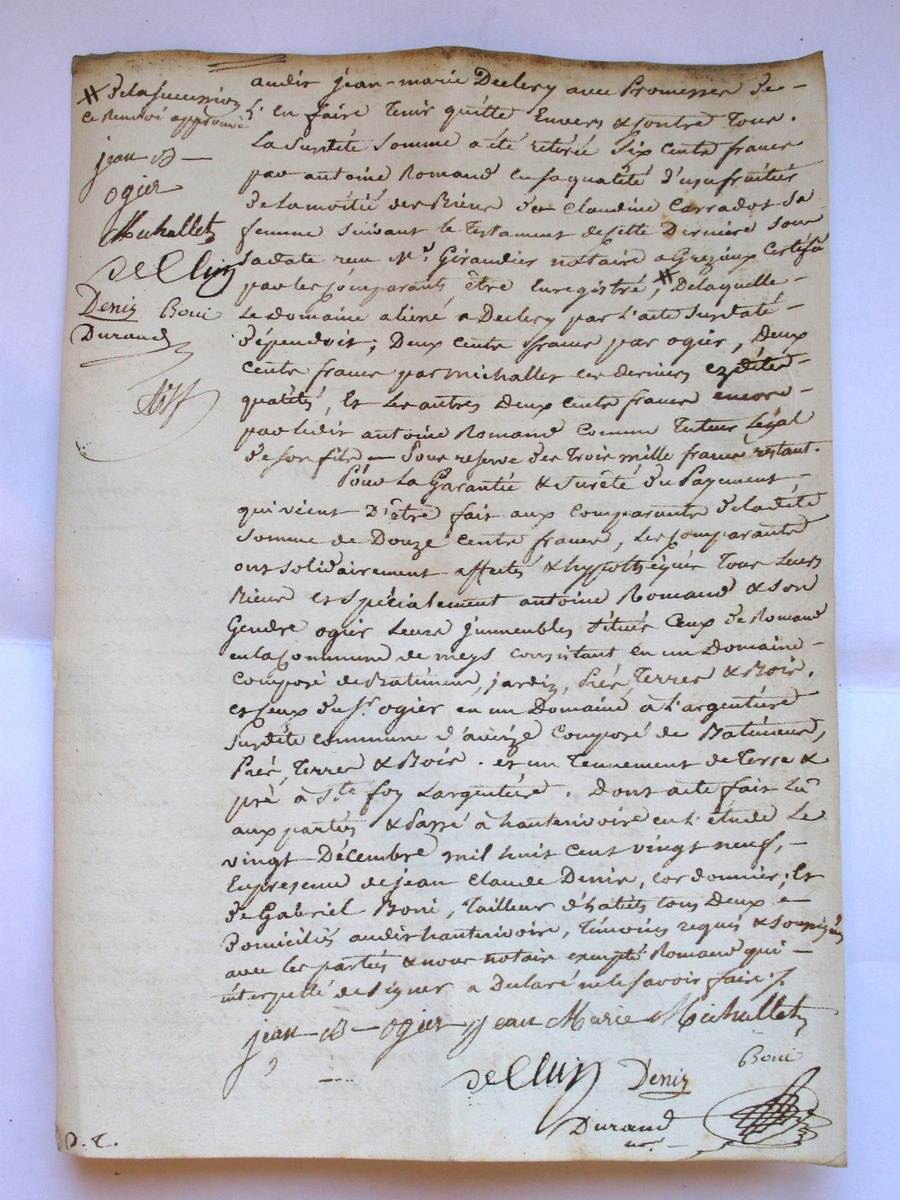 # de la succession
ce renvoi approuvé
jean B
ogier
Michallet
deClery
Denis Boni
Durand
audit jean-marie Declery avec Promesses de
l'en faire tenir quitte Envers & contre Tous.
La susdite Somme a été retirée Six cents francs
par antoine Romand en sa qualité d'usufruitier
de la moitié des Biens de Claudine Carradot sa
femme suivant le Testament de cette Derniere sous
sa date reçu Me. Girandier notaire a Grezieux Certifié
par les Comparants être Enregistré, # De laquelle
Le Domaine aliené a Declery par l'acte susdaté
dépendoit; Deux cents francs par ogier, Deux
cents francs par michallet ces derniers ezdites
qualités, Et Les autres Deux cents francs encore
par ledit antoine Romand comme Tuteur Légal
de son fils — Sous reserve des Trois mille francs restant.
Pour La Garantie & Sureté du Payement
qui vient D'être fait aux comparants de ladite
somme de Douze cents francs, Les comparants
ont solidairement affectés & hypothéqués Tous Leurs
Biens et spécialement antoine Romand & son
Gendre ogier Leurs jmmeubles situés Ceux de Romand
en la Commune de meys consistant en un Domaine
composé de Batiment, jardin, Prés, Terres & Bois,
et ceux du Sr. ogier en un Domaine à L'argentière
susdite commune d'aveize Composé de Batiments,
Prés, Terres & Bois. et un Tennement de Terre &
pré à Ste foy Largentiere. Dont acte fait Lu
aux parties & Passé à hauterivoire en L'étude Le
vingt Décembre mil huit cent vingt neuf,
En presence de jean Claude Denis, cordonnier; Et
de Gabriel Boni, Tailleur d'habits tous Deux
Domiciliés audit hauterivoire, Témoins requis & soussignés
avec les parties & nous notaire excepté Romand qui
interpellé de signer a Déclaré ne le savoir faire ./.
jean B ogier jean Marie Michallet
deClery Denis Boni
Durand
nore
D. T.